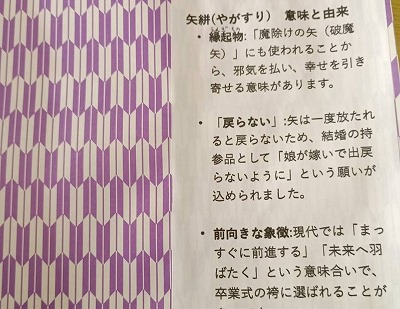 矢絣(やがすり) 意味と由来
• 縁起物:「魔除けの矢(破魔
矢)」にも使われることか
ら、邪気を払い、幸せを引き
寄せる意味があります。
• 「戻らない」:矢は一度放たれ
ると戻らないため、結婚の持
参品として「娘が嫁いで出戻
らないように」という願いが
込められました。
• 前向きな象徴:現代では「まっ
すぐに前進する」「未来へ羽
ばたく」という意味合いで、
卒業式の袴に選ばれることが